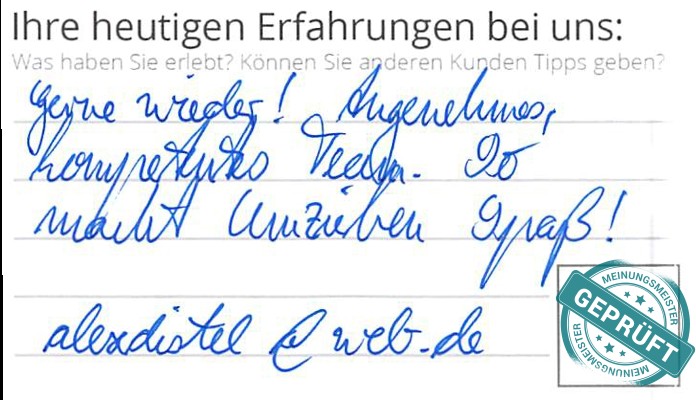 Ihre heutigen Erfahrungen bei uns:
Was haben Sie erlebt? Können Sie anderen Kunden Tipps geben?
Gerne wieder! Angenehmes,
kompetentes Team. So
macht Umziehen Spaß!
alexdistel @ web.de
MEINUNGSMEISTER
GEPRÜFT
MEINUNGSMEISTER